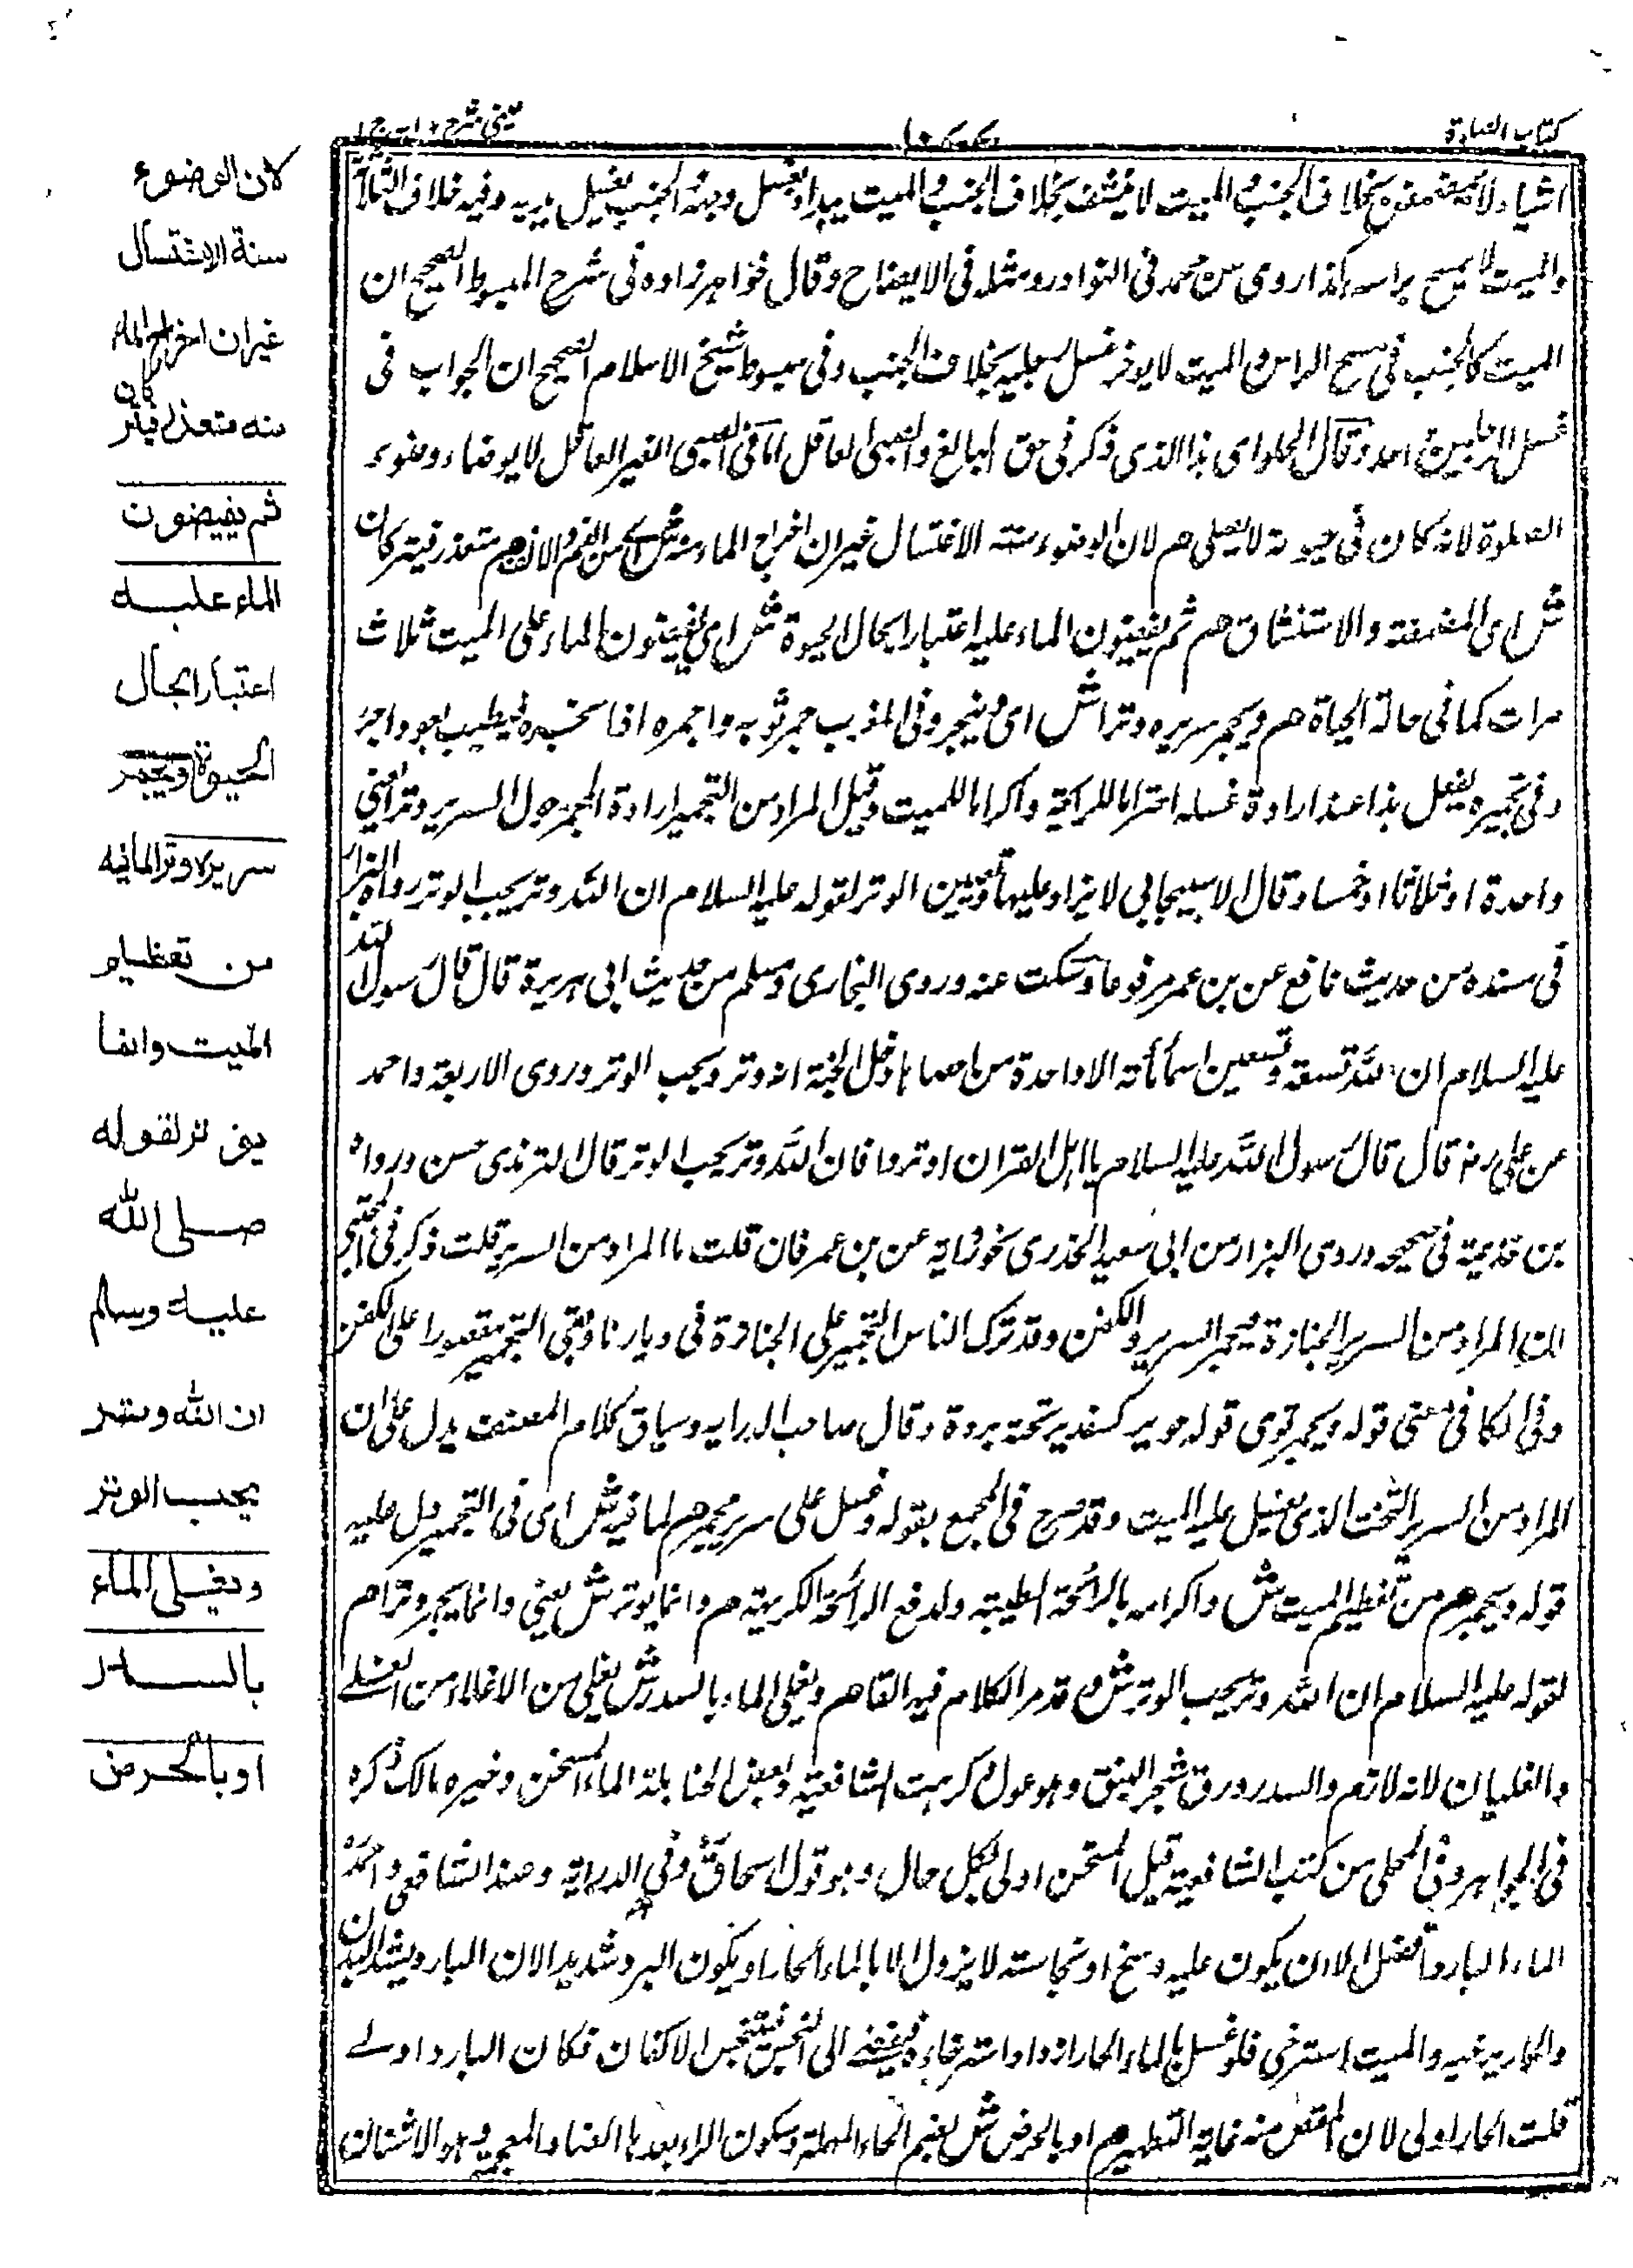 كتاب الصلوة
١٠٧٧
عيني شرح هداية ج ١
اشياء لانه يمضمض بخلاف الجنب والميت لا يستنشق بخلاف الجنب والميت يبدأ بغسل وجهه والجنب يغسل يديه وفيه خلاف الثلاثة
والميت لا يمسح براسه هكذا روى عن محمد في النوادر ومثله في الايضاح وقال خواهرزاده في شرح المبسوط الصحيح ان
الميت كالجنب في مسح الراس والميت لا يوخر غسل رجليه بخلاف الجنب وفي مبسوط شيخ الاسلام الصحيح ان الجواب في
غسل الرجلين واحد وقال الحلواى هذا الذي ذكر في حق البالغ والصبي العاقل اما في الصبي الغير العاقل لا يوضاء وضوء
الصلوة لانه كان في حيوته لا يصلى هم لان الوضوء سنة الاغتسال غير ان اخراج الماء منه ش اى من الفم والانف هم متعذر فيترکان
ش اى المضمضة والاستنشاق هم ثم يفيضون الماء عليه اعتبارا بحال الحيوة ش اى يفيضون الماء على الميت ثلاث
مرات كما في حالة الحياة هم ويجمر سريره وترا ش اى ويبخر وفي المغرب جمر ثوبه واجمره اذا بخره بطيب
وفي تجميره يفعل هذا عند ارادة غسله احترازا للرائحة واكراما للميت وقيل المراد من التجمير ادارة المجمر حول السرير وترا يعني
واحدة او ثلاثا او خمسا وقال الاسبيجابي لا يزاد عليها وتعين الوتر لقوله عليه السلام ان الله وتر يحب الوتر رواه البزار
في مسنده من حديث نافع عن بن عمر مرفوعا وسكت عنه وروى البخاري ومسلم من حديث ابي هريرة قال قال رسول الله
عليه السلام ان لله تسعة وتسعين اسما مائة الا واحدة من احصاها دخل الجنة انه وتر ويحب الوتر وروى الاربعة واحمد
عن علي رضه قال قال رسول الله عليه السلام يا اهل القران اوتروا فان الله وتر يحب الوتر قال الترمذي حسن ورواه
بن خزيمة في صحيحه وروى البزار من ابي سعيد الخدري نحو رواية عن بن عمر فان قلت ما المراد من السرير قلت ذكر في المجتبى
ان المراد من السرير الجنازة فيجمر السرير والكفن وقد ترك الناس التجمير على الجنازة في ديارنا وبقي التجمير مقصورا على الكفن
وفي الكافي معنى قوله ويجمر قوى قوله صاحب الدراية وسياق كلام المصنف يدل على ان
المراد من السرير التخت الذي يغسل عليه الميت وقد صرح في المجمع بقوله وغسل على سرير مجمر هم لما فيه ش اى في التجمير دل عليه
قوله ويجمر هم من تعظيم الميت ش واكرامه بالرائحة الطيبة ولدفع الرائحة الكريهة هم وانما يوتر ش يعني وانما يجمر وترا هم
لقوله عليه السلام ان الله وتر يحب الوتر ش وقد مر الكلام فيه هم ويغلى الماء بالسدر ش يغلى من الاغلاء من الغلى
والغليان لانه لازم والسدر ورق شجر النبق وهو معمول في كريت الشافعية وبعض الحنابلة الماء المسخن وخيره مالك ذكره
في الجواهر وفي المحلى من كتب الشافعية قيل المسخن اولى بكل حال وهو قول اسحاق وفي الدراية وعند الشافعي واحمد
الماء البارد افضل الا ان يكون عليه وسخ او نجاسة لا يزول الا بالماء الحار او يكون البرد شديدا لان البارد يشد البدن
والحار يرخيه والميت استرخى فلو غسل بالماء الحار ازداد استرخاؤه فيفضى الى النجس فيتنجس الاكفان فكان البارد اولى
قلت الحار اولى لان المقصود منه غاية التطهير هم او بالحرض ش بضم الحاء المهملة وسكون الراء بعدها الضاد المعجمة وهو الاشنان
لان الوضوء
سنة الاغتسال
غير ان اخراج الماء
منه متعذر فيتركان
ثم يفيضون
الماء عليه
اعتبارا بحال
الحيوة ويجمر
سريره وترا لما فيه
من تعظيم
الميت وانما
يوتر لقوله
صلى الله
عليه وسلم
ان الله وتر
يحب الوتر
ويغلى الماء
بالسدر
او بالحرض